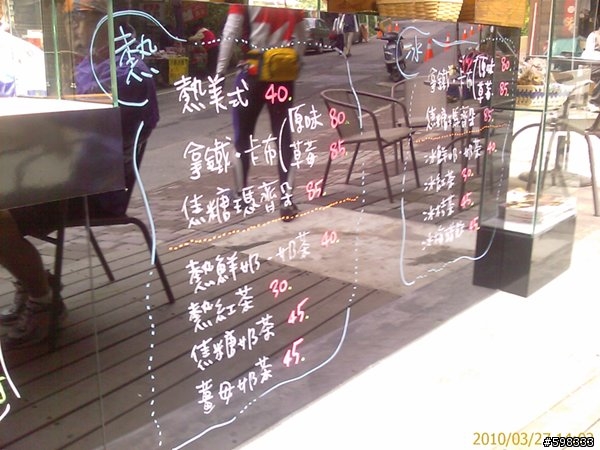 熱
熱美式 40.
拿鐵·卡布(原味 80.
草莓 85.
焦糖瑪奇朵 85.
熱鮮奶·奶茶 40.
熱紅茶 30.
焦糖奶茶 45.
薑母奶茶 45.
冰
拿鐵·卡布(原味 80.
草莓 85.
焦糖瑪奇朵 85.
冰鮮奶·奶茶 40.
冰紅茶 30.
2010/03/27 14:02
#598333